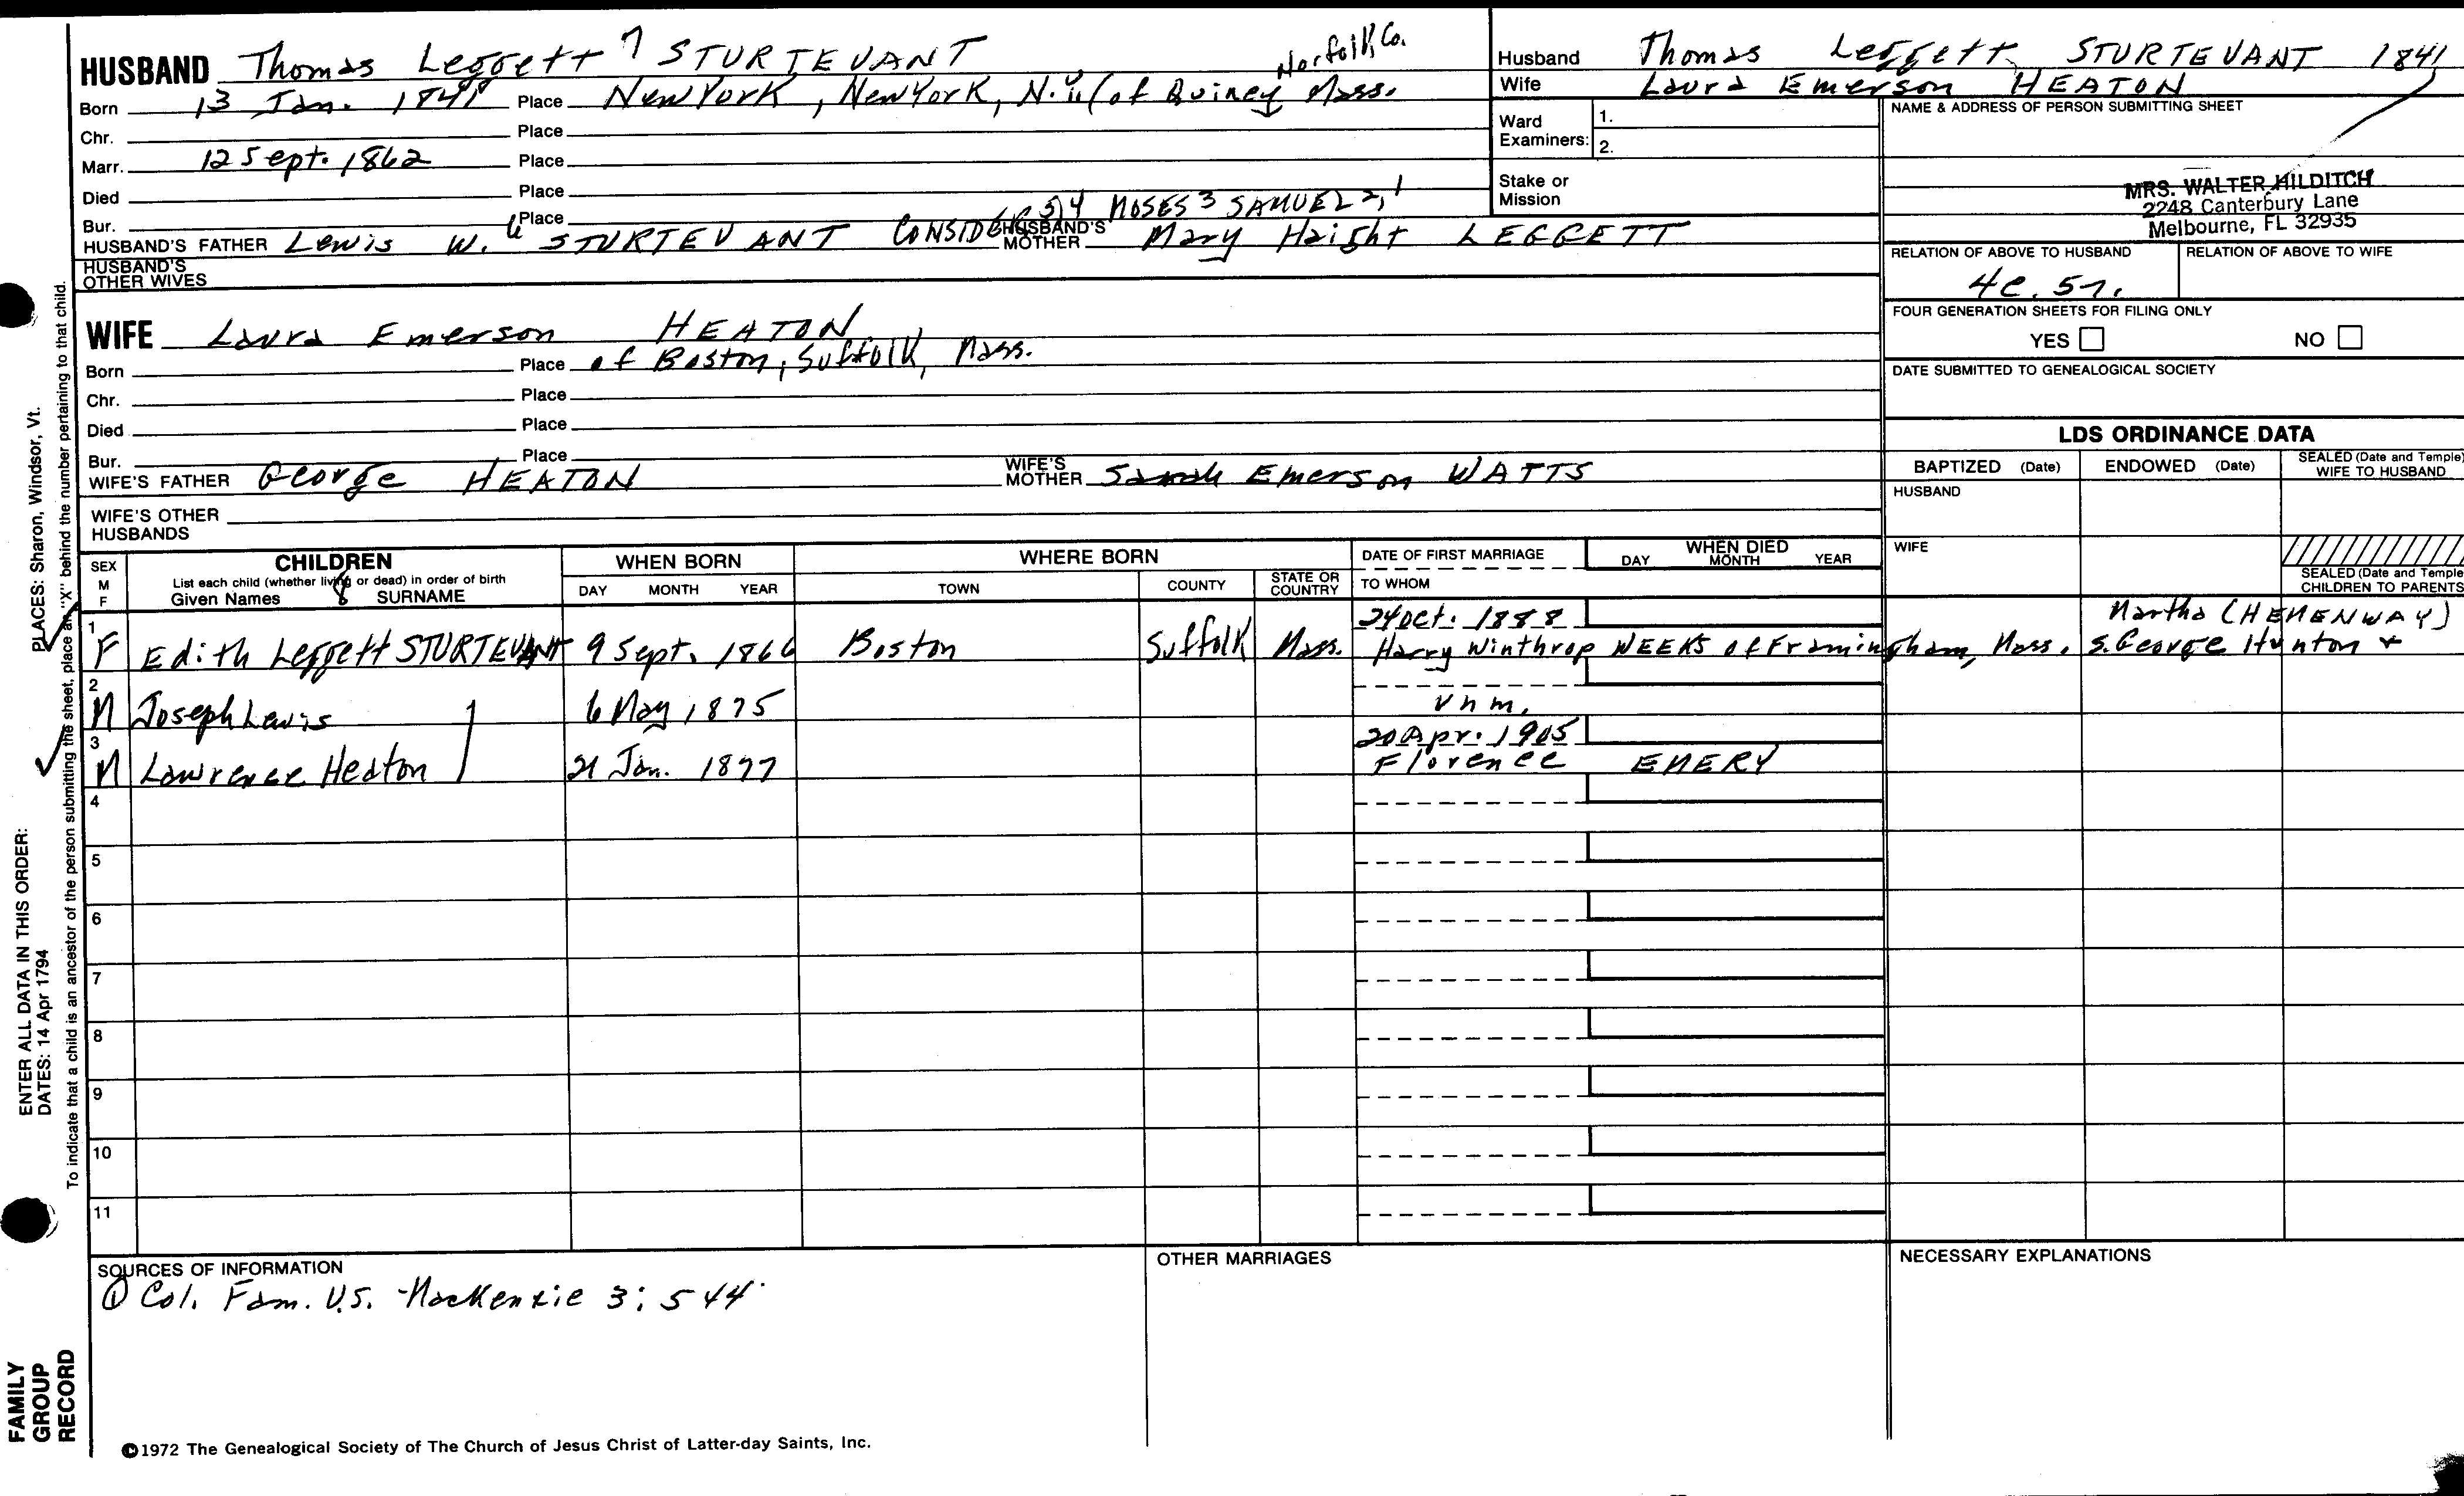 HUSBAND Thomas Leggett 7 STURTEVANT
Norfolk, Co.
Born 13 Jan. 1841 Place New York, New York, N.Y. (of Quincy Mass.
Chr. Place
Marr. 12 Sept. 1862 Place
Died Place
Bur. Place
HUSBAND'S FATHER Lewis W. 6 STURTEVANT CONSIDER 5,4 MOSES 3 SAMUEL 2,1
HUSBAND'S MOTHER Mary Haight LEGGETT
HUSBAND'S OTHER WIVES
WIFE Laura Emerson HEATON
Born Place of Boston, Suffolk, Mass.
Chr. Place
Died Place
Bur. Place
WIFE'S FATHER George HEATON WIFE'S MOTHER Sarah Emerson WATTS
WIFE'S OTHER HUSBANDS
Husband Thomas Leggett STURTEVANT 1841
Wife Laura Emerson HEATON
Ward Examiners: 1.
2.
Stake or Mission
NAME & ADDRESS OF PERSON SUBMITTING SHEET
MRS. WALTER HILDITCH
2248 Canterbury Lane
Melbourne, FL 32935
RELATION OF ABOVE TO HUSBAND RELATION OF ABOVE TO WIFE
4c. 5r.
FOUR GENERATION SHEETS FOR FILING ONLY
YES NO
DATE SUBMITTED TO GENEALOGICAL SOCIETY
LDS ORDINANCE DATA
BAPTIZED (Date) ENDOWED (Date) SEALED (Date and Temple) WIFE TO HUSBAND
HUSBAND
WIFE
SEALED (Date and Temple) CHILDREN TO PARENTS
SEX M F CHILDREN WHEN BORN WHERE BORN DATE OF FIRST MARRIAGE WHEN DIED
List each child (whether living or dead) in order of birth
Given Names 8 SURNAME DAY MONTH YEAR TOWN COUNTY STATE OR COUNTRY TO WHOM DAY MONTH YEAR
24 Oct. 1888 Martha (HEMENWAY)
1 F Edith Leggett STURTEVANT 9 Sept. 1866 Boston Suffolk Mass. Harry Winthrop WEEKS of Framingham, Mass. S. George Hunton +
2 M Joseph Lewis 6 May 1875 unm.
20 Apr. 1905
3 M Lawrence Heaton 21 Jan. 1877 Florence EMERY
4
5
6
7
8
9
10
11
SOURCES OF INFORMATION
① Col. Fam. U.S. - MacKenzie 3: 544
OTHER MARRIAGES
NECESSARY EXPLANATIONS
©1972 The Genealogical Society of The Church of Jesus Christ of Latter-day Saints, Inc.
ENTER ALL DATA IN THIS ORDER:
DATES: 14 Apr 1794 PLACES: Sharon, Windsor, Vt.
To indicate that a child is an ancestor of the person submitting the sheet, place an "X" behind the number pertaining to that child.
FAMILY
GROUP
RECORD